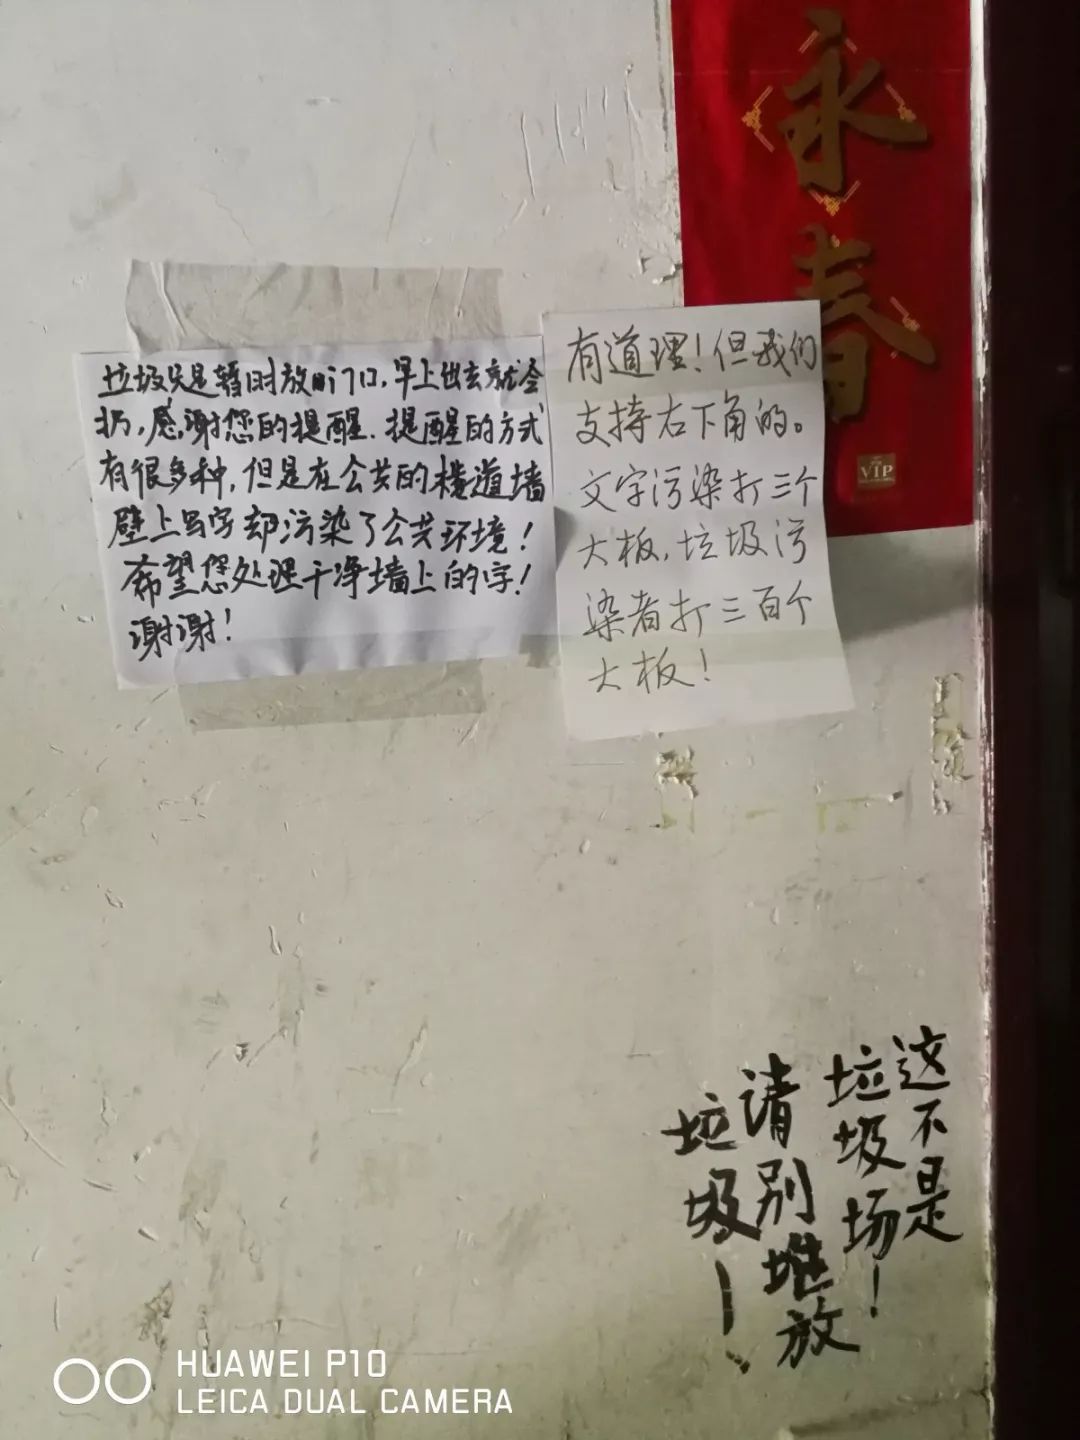 永春
VIP
垃圾只是暂时放时门口,早上出去就会
扔,感谢您的提醒.提醒的方式
有很多种,但是在公共的楼道墙
壁上写字却污染了公共环境!
希望您处理干净墙上的字!
谢谢!
有道理!但我们
支持右下角的。
文字污染打三个
大板,垃圾污
染者打三百个
大板!
这不是
垃圾场!
请别堆放
垃圾!
HUAWEI P10
LEICA DUAL CAMERA